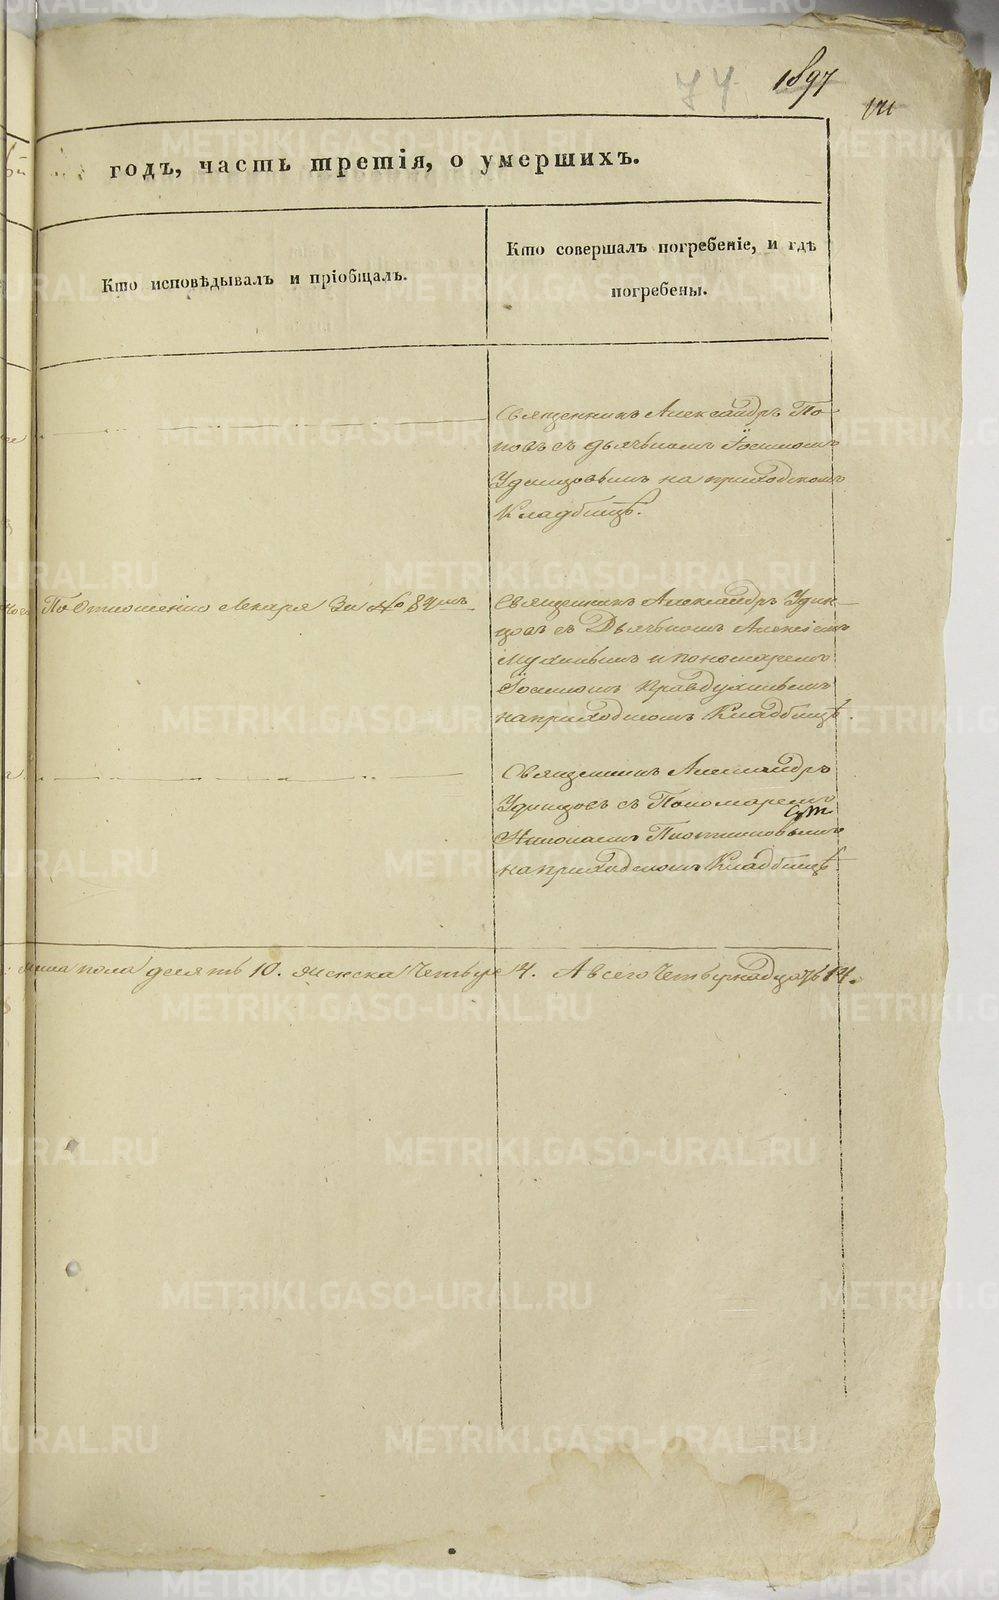 74
1897
171
годъ, часть третія, о умершихъ.
Кто исповѣдывалъ и пріобщалъ.
Кто совершалъ погребеніе, и гдѣ
погребены.
Священникъ Александръ По-
повъ съ дьячкомъ Іосифомъ
Удинцовымъ на приходскомъ
Кладбищѣ.
По Отношенію Лекаря За № 84мъ
Священникъ Александръ Удин-
цовъ съ Дьячкомъ Алексіемъ
и пономаремъ
Іосифомъ Правдухинымъ
на приходскомъ Кладбищѣ.
Священникъ Александръ
Удинцовъ съ Пономаремъ
Николаемъ Плотниковымъ
на приходскомъ Кладбищѣ.
пола десять 10. женска Четыре 4. А всего Четырнадцать 14.
METRIKI.GASO-URAL.RU